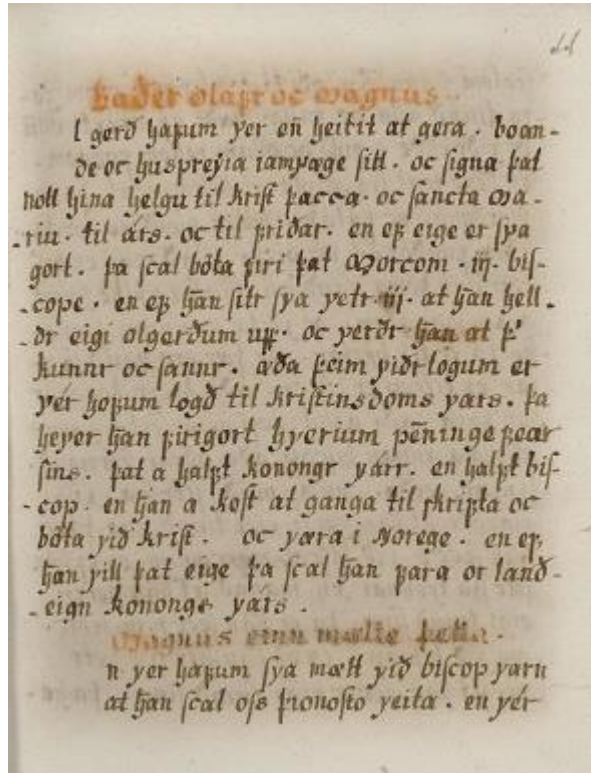 44
Baðer olafr oc magnus.
l gerð hafum ver en̄ heitit at gera. boan-
de oc husprẏia iamvæge sitt. oc signa þat
nott hina helgu til krist þacca. oc sancta ma-
riu. til árs. oc til friðar. en ef eige er sva
gort. þa scal bóta firi þat morcom .iij. bis-
cope. en ef han̄ sitr sva vetr iij. at han̄ hell-
dr eigi olgerðum upp. oc verðr han̄ at þ'
kunnr oc sannr. æða þeim viðrlogum er
vér hofum logð til kristinsdoms vars. þa
hever han̄ firigort hverium pēninge fear
sins. þat a halft konongr várr. en halft bis-
cop. en han̄ a kost at ganga til skripta oc
bóta við krist. oc væra i Norege. en ef
han̄ vill þat eige þa scal han̄ fara or land-
eign kononge várs.
Magnus einn mælte þetta.
n ver hafum sva mætt við biscop varn
at han̄ scal oss þionosto veita. en vér